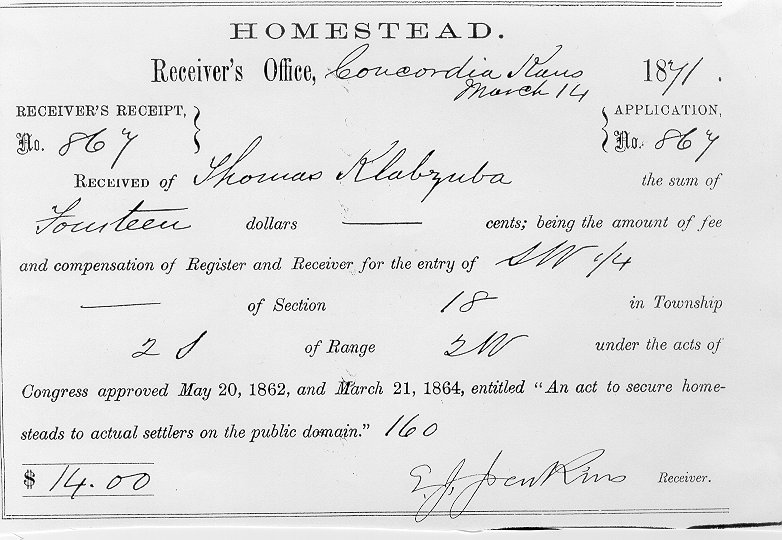 HOMESTEAD.
Receiver's Office, Concordia Kans 1871.
March 14
RECEIVER'S RECEIPT, APPLICATION,
No. 867 No. 867
RECEIVED of Thomas Klabzuba the sum of
Fourteen dollars — cents; being the amount of fee
and compensation of Register and Receiver for the entry of SW 1/4
— of Section 18 in Township
2 S of Range 2W under the acts of
Congress approved May 20, 1862, and March 21, 1864, entitled "An act to secure home-
steads to actual settlers on the public domain." 160
$ 14.00 E. J. Jenkins Receiver.